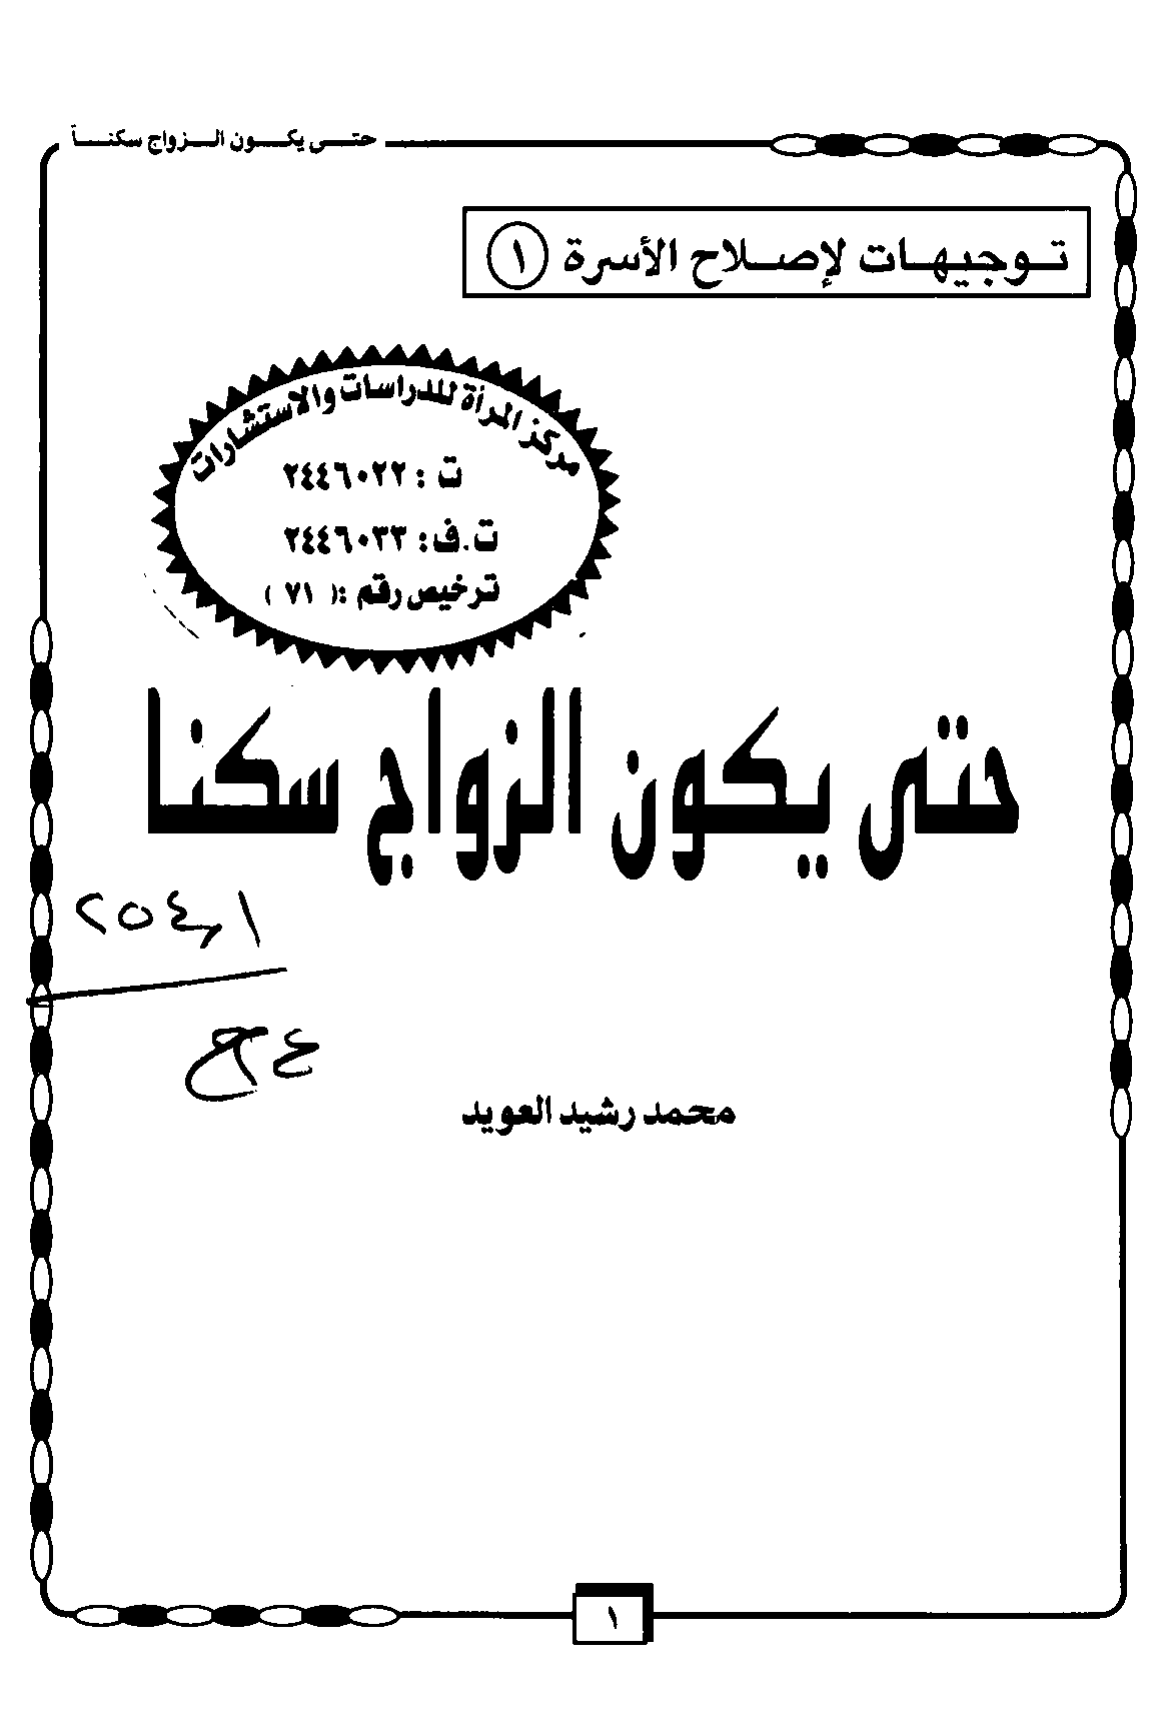 حتى يكون الزواج سكناً
توجيهات لإصلاح الأسرة ١
مركز المرأة للدراسات والاستشارات
ت : ٢٤٤٦٠٢٢
ت.ف: ٢٤٤٦٠٣٣
ترخيص رقم :( ٧١ )
حتى يكون الزواج سكنا
محمد رشيد العويد
١